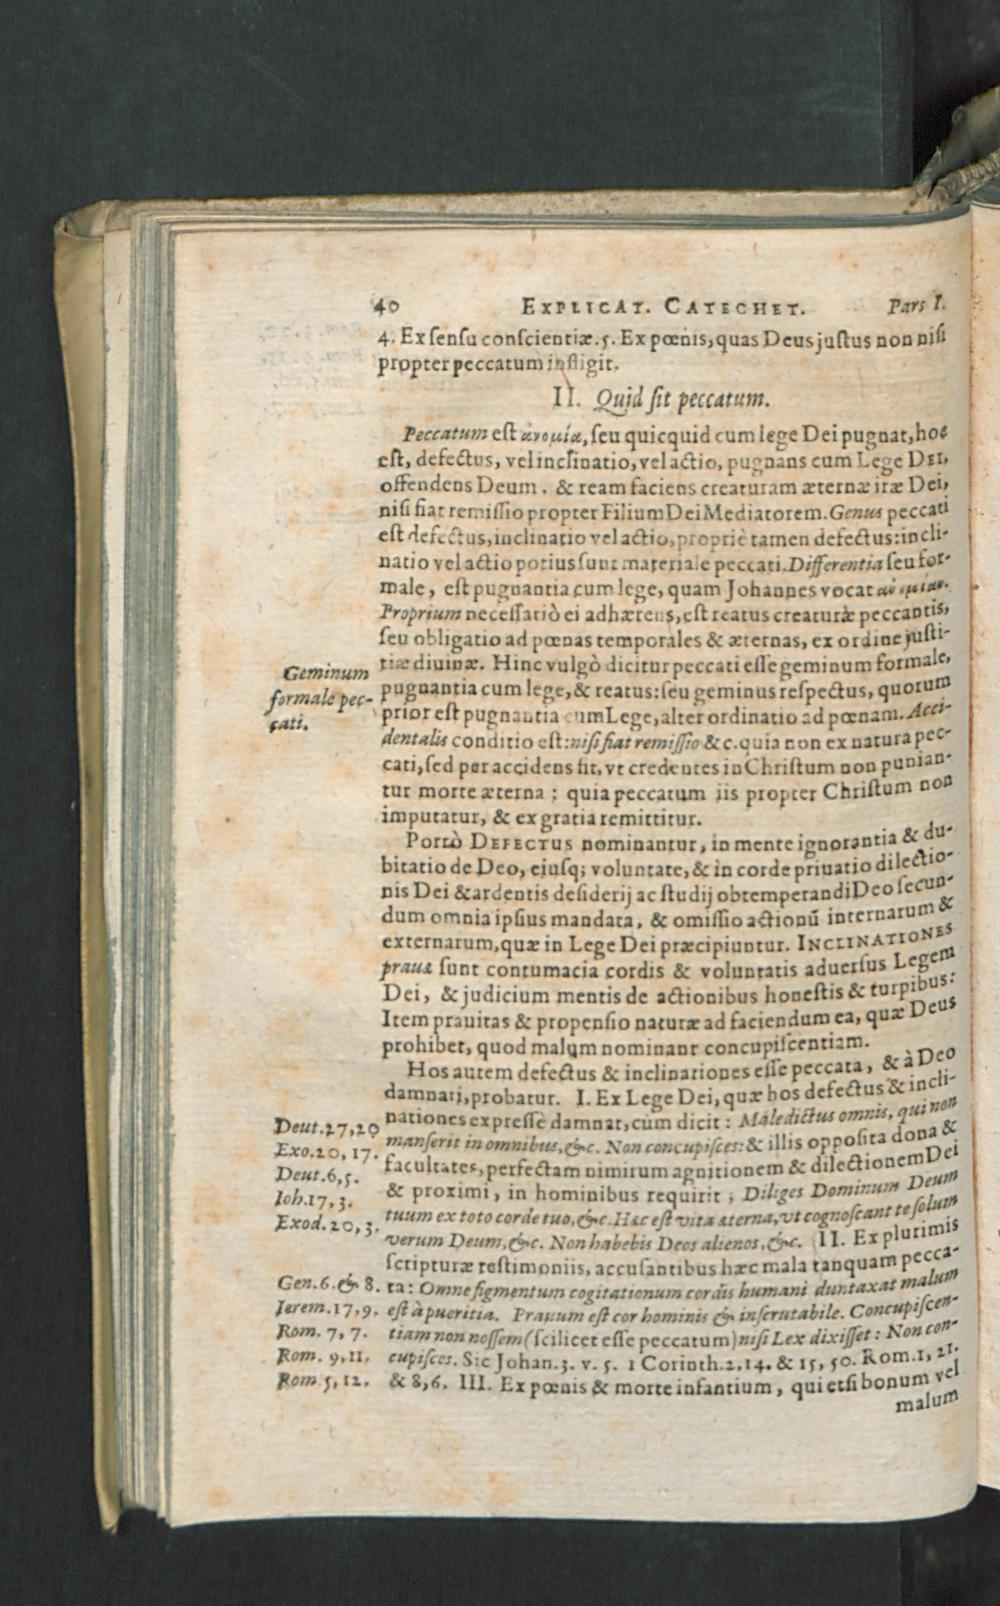 40 EXPLICAT. CATECHET. Pars I.
4. Ex sensu conscientiæ. 5. Ex pœnis, quas Deus justus non nisi
propter peccatum infligit.
II. Quid sit peccatum.
Peccatum est ἀνομία, seu quicquid cum lege Dei pugnat, hoc
est, defectus, vel inclinatio, vel actio, pugnans cum Lege DEI,
offendens Deum, & ream faciens creaturam æternæ iræ Dei,
nisi fiat remissio propter Filium Dei Mediatorem. Genus peccati
est defectus, inclinatio vel actio, propriè tamen defectus: incli-
natio vel actio potius sunt materiale peccati. Differentia seu for-
male, est pugnantia cum lege, quam Johannes vocat ἀνομίαν.
Proprium necessariò ei adhærens, est reatus creaturæ peccantis,
seu obligatio ad pœnas temporales & æternas, ex ordine justi-
tiæ diuinæ. Hinc vulgò dicitur peccati esse geminum formale,
Geminum
formale pec-
cati.
pugnantia cum lege, & reatus: seu geminus respectus, quorum
prior est pugnantia cum Lege, alter ordinatio ad pœnam. Acci-
dentalis conditio est: nisi fiat remissio &c. quia non ex natura pec-
cati, sed per accidens fit, vt credentes in Christum non punian-
tur morte æterna; quia peccatum iis propter Christum non
imputatur, & ex gratia remittitur.
Porrò DEFECTUS nominantur, in mente ignorantia & du-
bitatio de Deo, ejusq; voluntate, & in corde priuatio dilectio-
nis Dei & ardentis desiderij ac studij obtemperandi Deo secun-
dum omnia ipsius mandata, & omissio actionū internarum &
externarum, quæ in Lege Dei præcipiuntur. INCLINATIONES
prauæ sunt contumacia cordis & voluntatis aduersus Legem
Dei, & judicium mentis de actionibus honestis & turpibus:
Item prauitas & propensio naturæ ad faciendum ea, quæ Deus
prohibet, quod malum nominant concupiscentiam.
Hos autem defectus & inclinationes esse peccata, & à Deo
damnari, probatur. I. Ex Lege Dei, quæ hos defectus & incli-
Deut. 27, 20 nationes expressè damnat, cùm dicit: Maledictus omnis, qui non
Exo. 20, 17. manserit in omnibus, &c. Non concupisces: & illis opposita dona &
Deut. 6, 5. facultates, perfectam nimirum agnitionem & dilectionem Dei
Ioh. 17, 3. & proximi, in hominibus requirit; Diliges Dominum Deum
Exod. 20, 3. tuum ex toto corde tuo, &c. Hæc est vita æterna, vt cognoscant te solum
verum Deum, &c. Non habebis Deos alienos, &c. II. Ex plurimis
scripturæ testimoniis, accusantibus hæc mala tanquam pecca-
Gen. 6. & 8. ta: Omne figmentum cogitationum cordis humani duntaxat malum
Jerem. 17, 9. est à pueritia. Prauum est cor hominis & inscrutabile. Concupiscen-
Rom. 7, 7. tiam non nossem (scilicet esse peccatum) nisi Lex dixisset: Non con-
Rom. 9, 11. cupisces. Sic Johan. 3. v. 5. 1 Corinth. 2, 14. & 15, 50. Rom. 1, 21.
Rom. 5, 12. & 8, 6. III. Ex pœnis & morte infantium, qui etsi bonum vel
malum